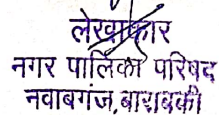 लेखाकार
नगर पालिका परिषद
नवाबगंज,बाराबंकी